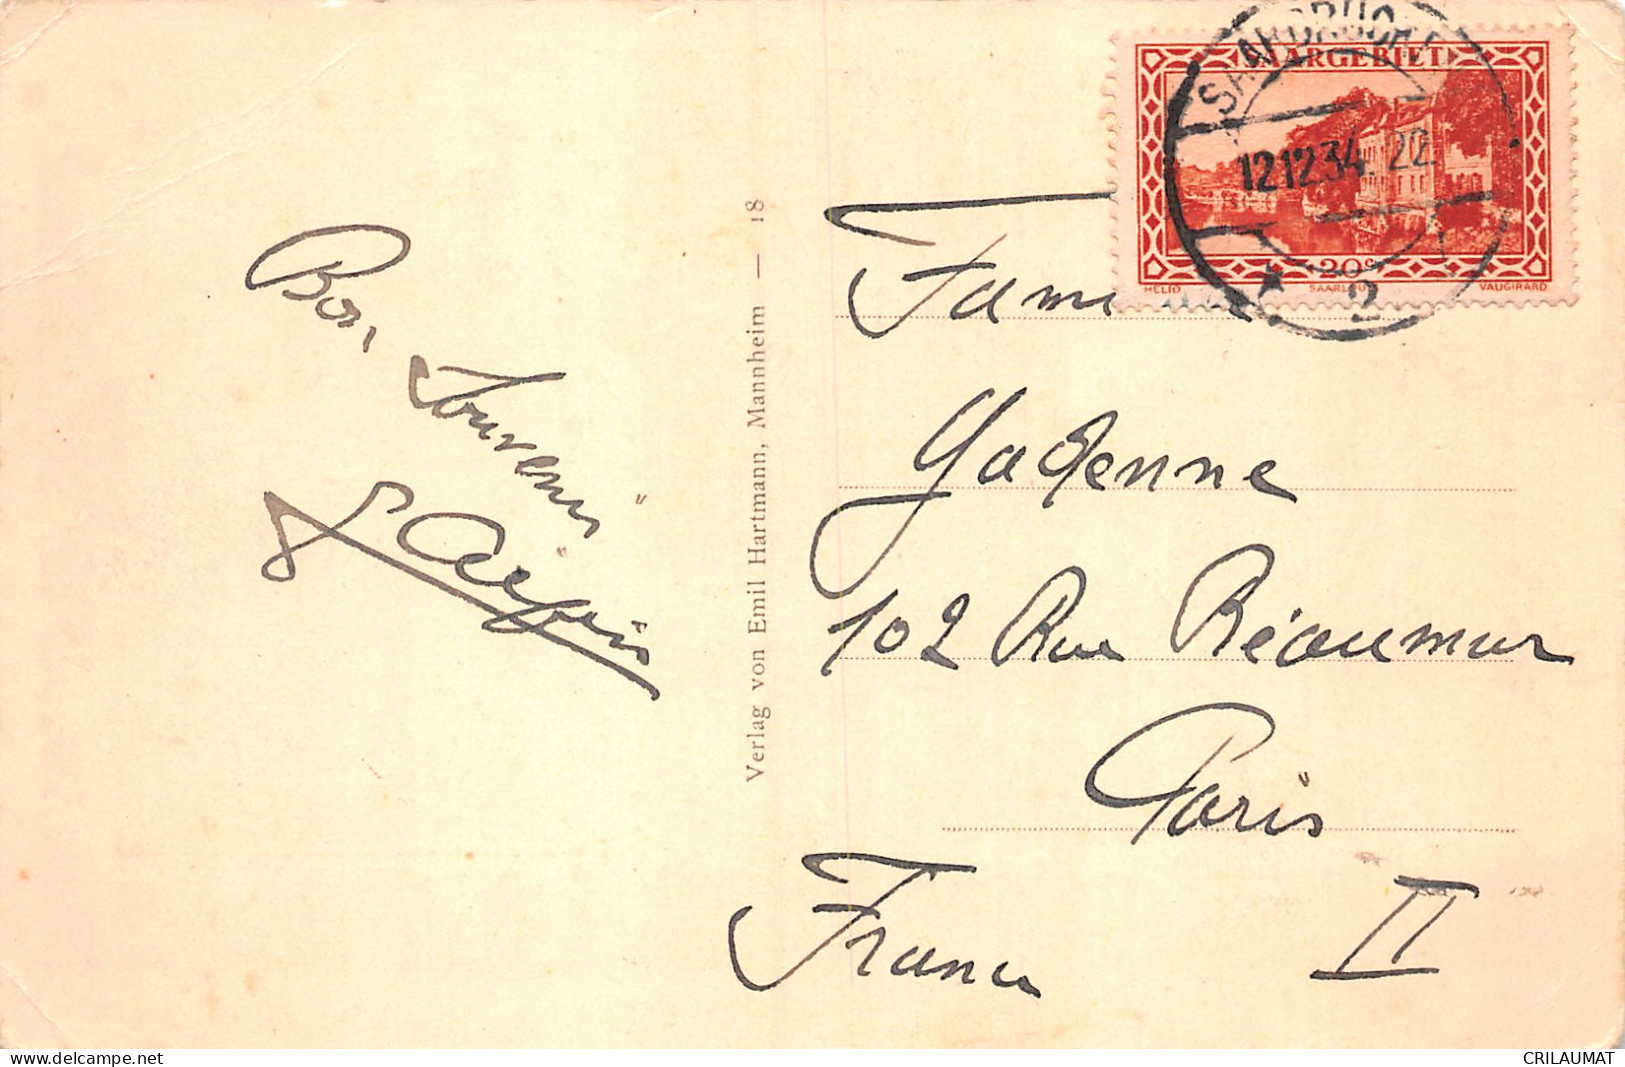 Bon
Souvenir
Verlag von Emil Hartmann, Mannheim — 18
SAARBRÜCKEN
12.12.34. 22
* 2
SAARGEBIET
20c
HELIO SAARLOUIS VAUGIRARD
Famille
Gadenne
102 Rue Réaumur
Paris
France II
CRILAUMAT